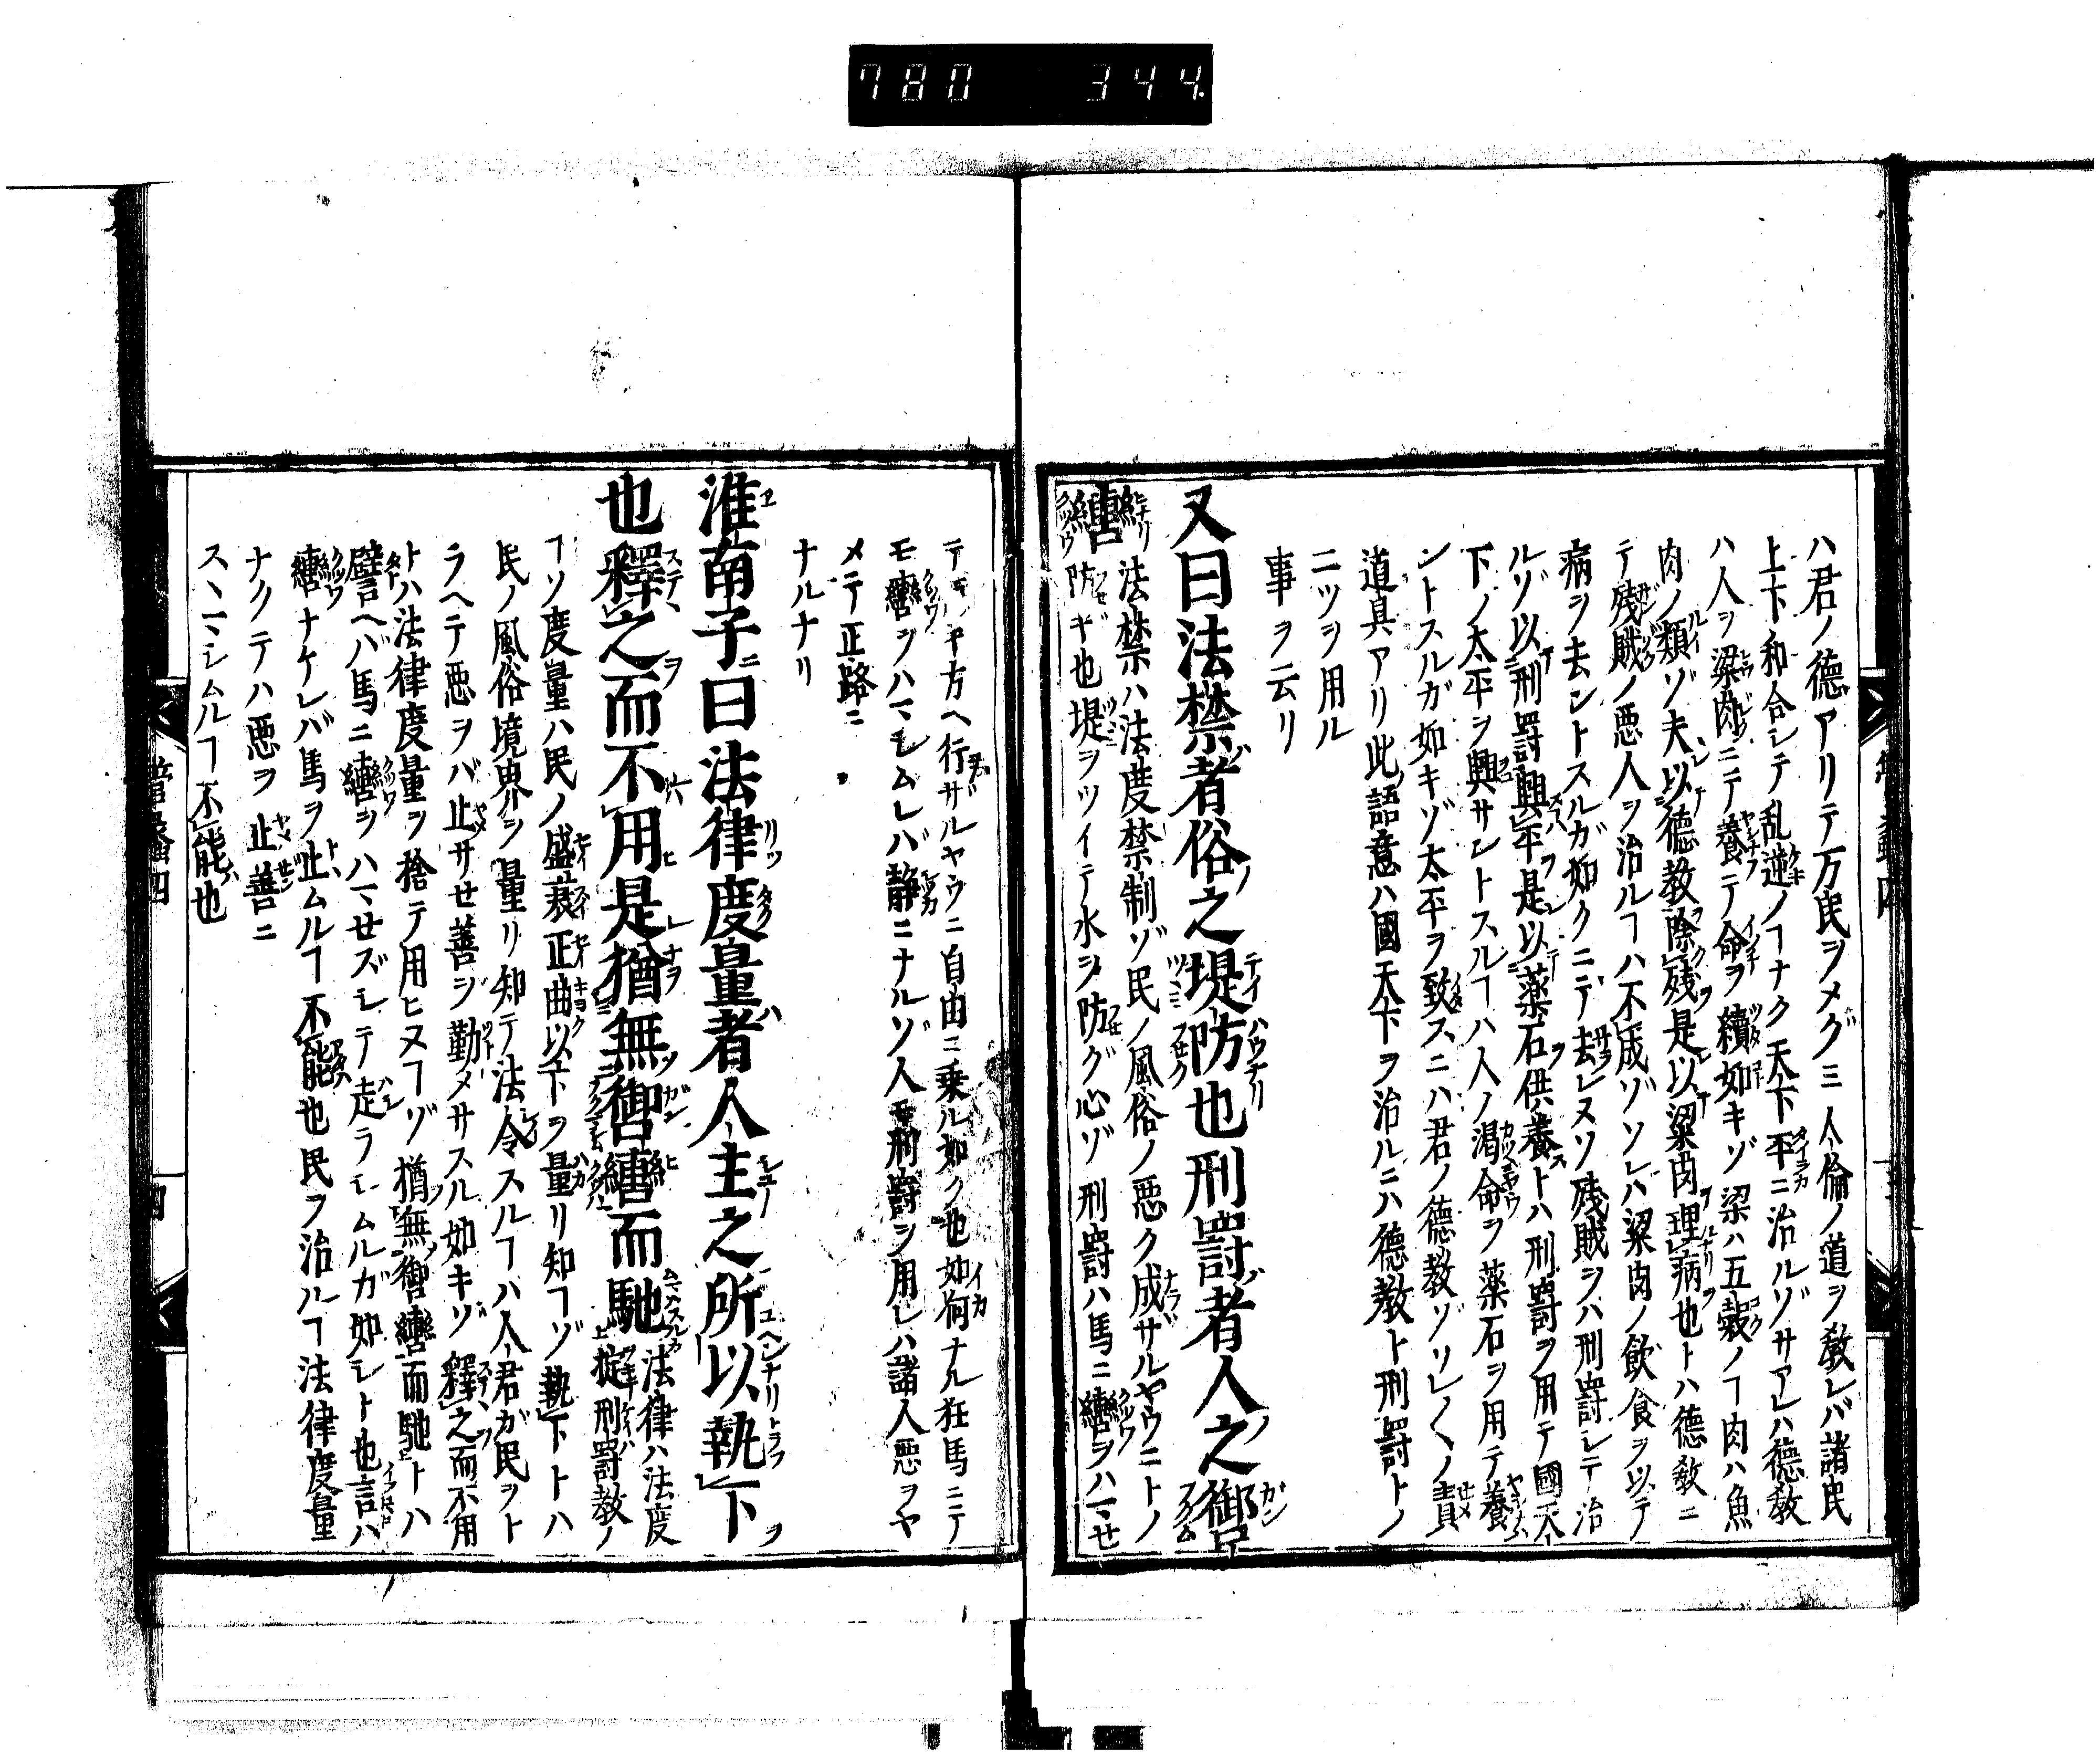 780 344
ハ君ノ德アリテ万民ヲメグミ人倫ノ道ヲ教レバ諸民
上下和合シテ乱逆ノヿナク天下平ニ治ルゾサアレハ德教
ハ人ヲ梁肉ニテ養テ命ヲ續如キゾ梁ハ五穀ノヿ肉ハ魚
肉ノ類ゾ夫以德教除残是以梁肉理病也トハ德教ニ
テ残賊ノ悪人ヲ治ルヿハ不成ゾソレバ梁肉ノ飲食ヲ以テ
病ヲ去ントスルガ如クニテ去レヌソ残賊ヲハ刑罸シテ治
ルゾ以刑罸興平是以薬石供養トハ刑罸ヲ用テ國天
下ノ太平ヲ興サントスルヿハ人ノ渇命ヲ薬石ヲ用テ養
ントスルガ如キゾ太平ヲ致スニハ君ノ德教ゾソレ〱ノ責
道具アリ此語意ハ國天下ヲ治ルニハ德教ト刑罸トノ
二ツヲ用ル
事ヲ云リ
又曰法禁者俗之堤防也刑罸者人之御
轡 法禁ハ法度禁制ゾ民ノ風俗ノ悪ク成ザルヤウニトノ
防ギ也堤ヲツイテ水ヲ防グ心ゾ刑罸ハ馬ニ轡ヲハマせ
テ 方ヘ行ザルヤウニ自由ニ乗ル如ク也如何ナル狂馬ニテ
モ轡ヲハマシムレバ静ニナルゾ人モ刑罸ヲ用レハ諸人悪ヲヤ
メテ正路ニ
ナルナリ
淮南子曰法律度量者人主之所以執下
也釋之而不用是猶無御轡而馳 法律ハ法度
掟刑罸教ノ
ヿソ度量ハ民ノ盛衰正曲以下ヲ量リ知ヿゾ執下トハ
民ノ風俗境界ヲ量リ知テ法令スルヿハ人君ガ民ヲト
ラヘテ悪ヲバ止サせ善ヲ勤メサスル如キゾ釋之而不用
トハ法律度量ヲ捨テ用ヒヌヿゾ猶無御轡而馳トハ
譬ヘバ馬ニ轡ヲハマせズシテ走ラシムルガ如シト也言ハ
轡ナケレバ馬ヲ止ムルヿ不能也民ヲ治ルヿ法律度量
ナクテハ悪ヲ止善ニ
スヽマシムルヿ不能也